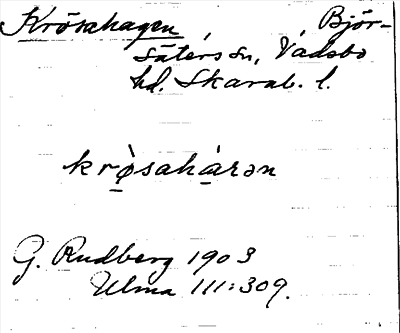 Krösahagen Björ-
säters sn, Vadsbo
hd. Skarab. l.
krø̀sahàrən
G. Rudberg 1903
Ulma 111:309.